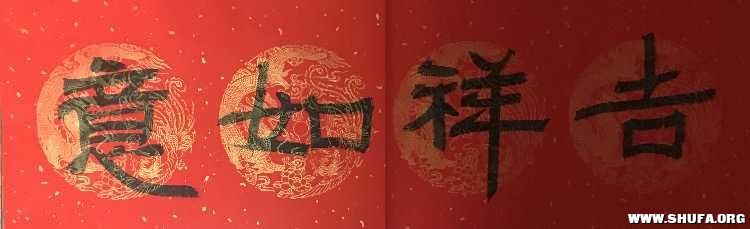 吉祥如意
WWW.SHUFA.ORG